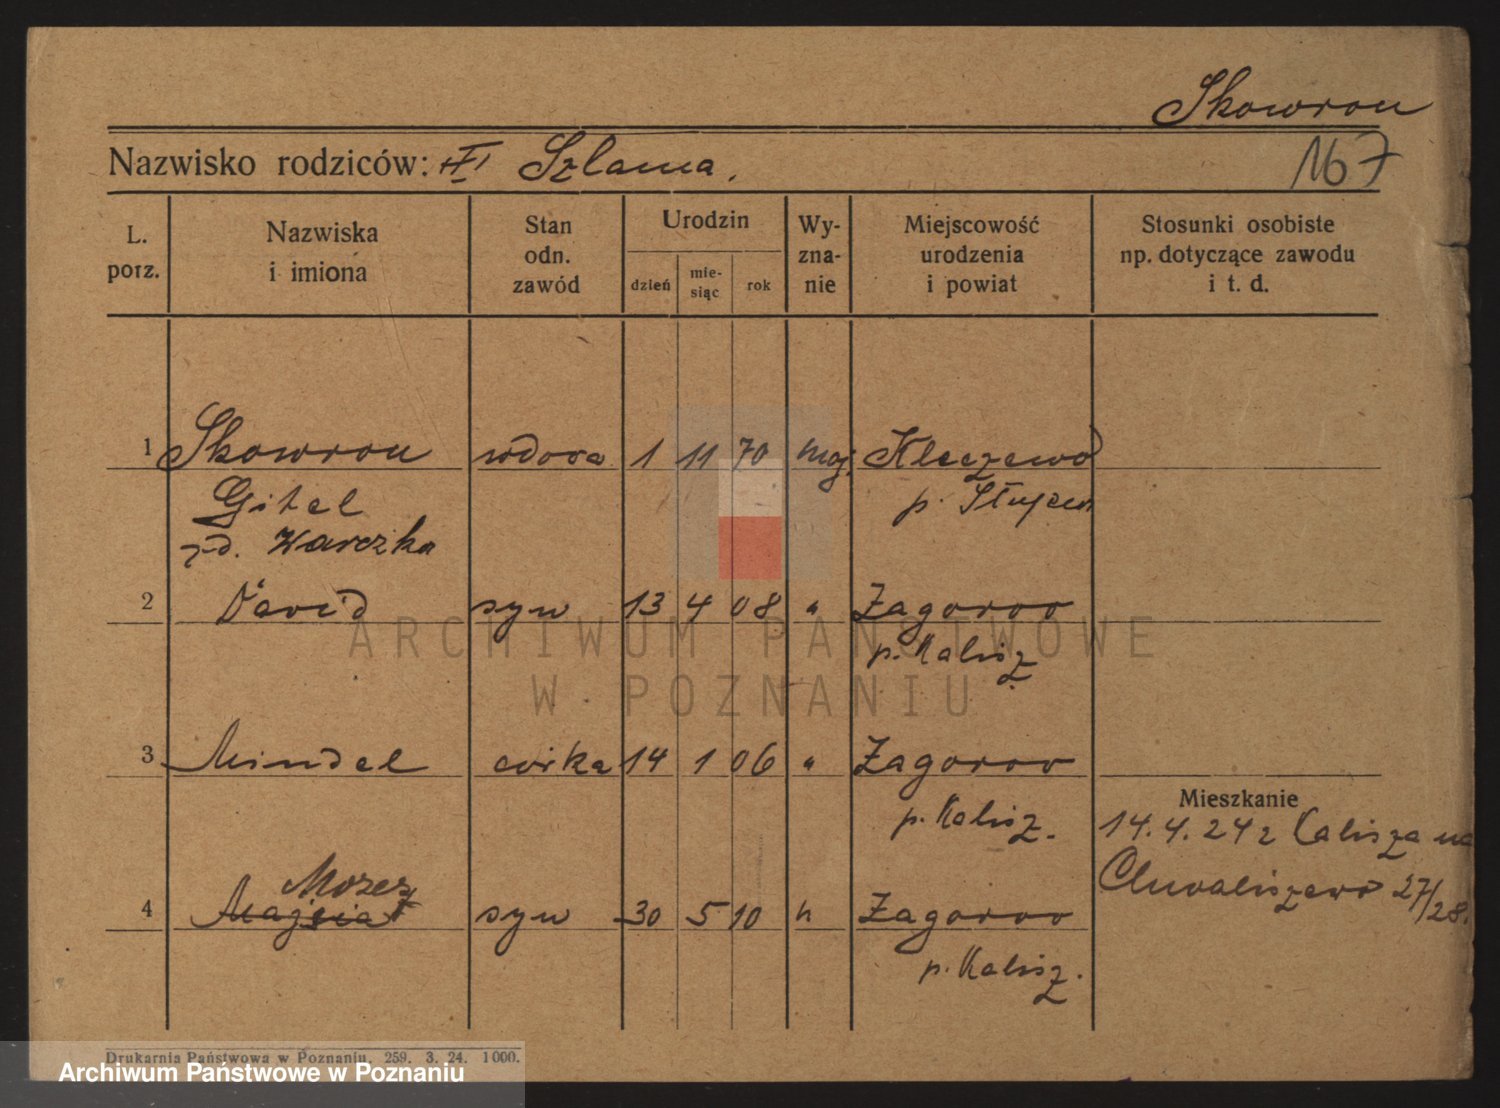 Skowron
Nazwisko rodziców: Szlama.
167
L. porz.
Nazwiska i imiona
Stan odn. zawód
Urodzin
dzień
mie-
siąc
rok
Wy-
zna-
nie
Miejscowość urodzenia i powiat
Stosunki osobiste np. dotyczące zawodu i t. d.
1 Skowron wdowa 1 11 70 moj. Kleczewo
Gitel p. Słupca
zd. Warczka
2 Dawid syn 13 4 08 " Zagorow
p. Kalisz
3 Mindel córka 14 1 06 " Zagorow
p. Kalisz.
Mieszkanie
14.4.24 z Kalisza na
Chwaliszewo 27/28.
Mozez
4 syn 30 5 10 " Zagorow
p. Kalisz.
ARCHIWUM PAŃSTWOWE
W POZNANIU
Drukarnia Państwowa w Poznaniu. 259. 3. 24. 1000.
Archiwum Państwowe w Poznaniu